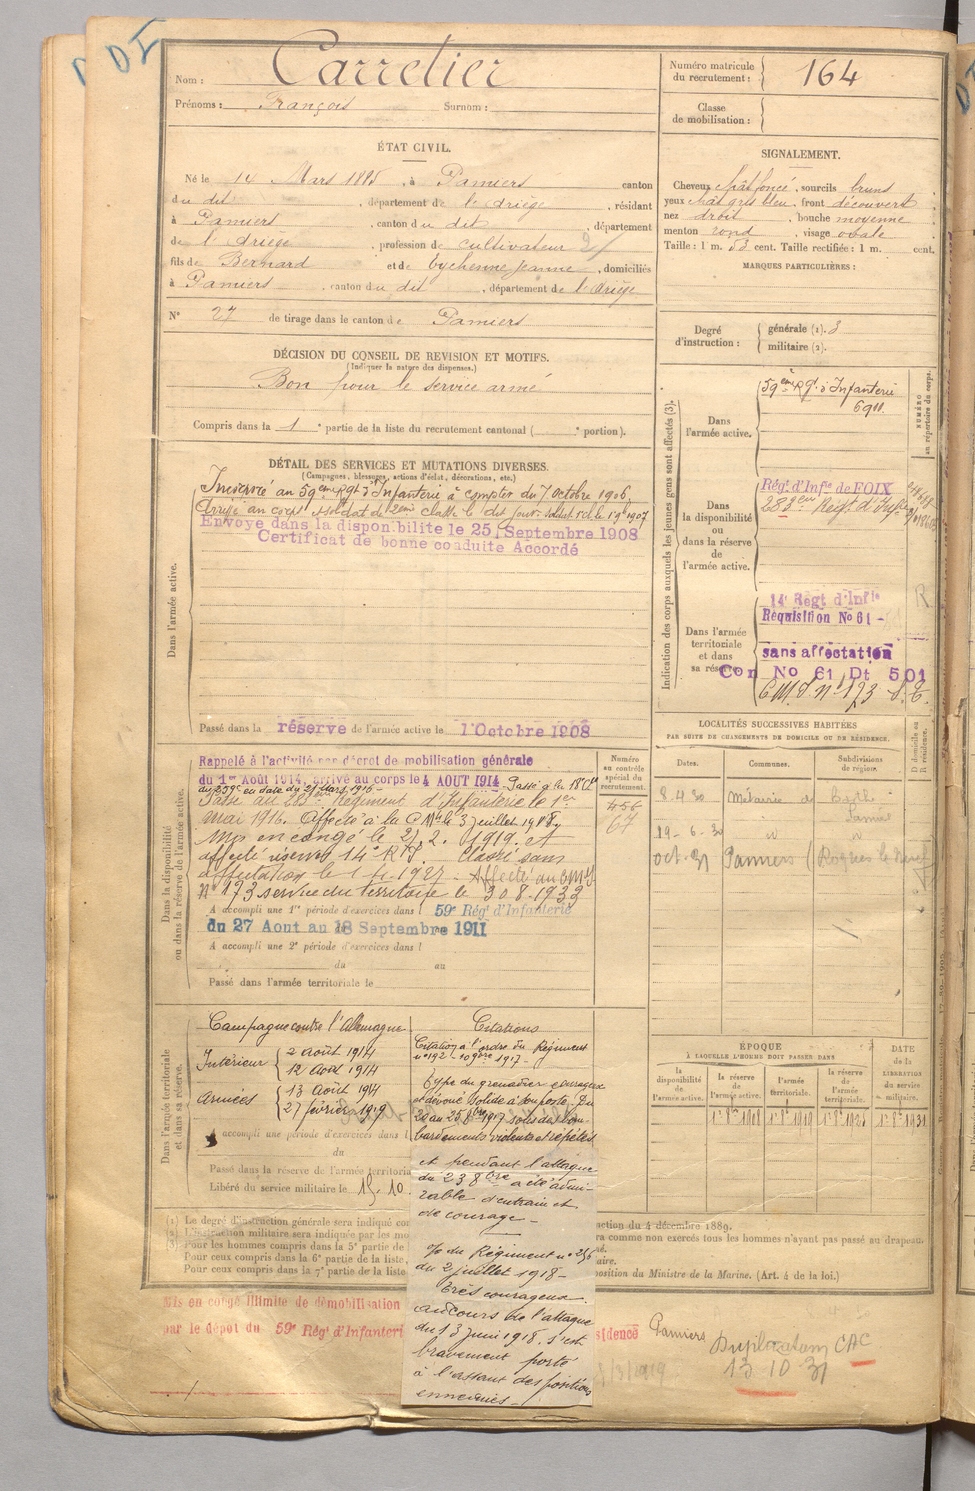 DI
Nom : Carretier
Prénoms : François Surnom :
Numéro matricule du recrutement : 164
Classe de mobilisation :
ÉTAT CIVIL.
Né le 14 Mars 1885, à Pamiers canton
du dit, département de l'Ariège, résidant
à Pamiers, canton du dit, département
de l'Ariège, profession de cultivateur
fils de Bernard et de Eychenne Jeanne, domiciliés
à Pamiers, canton du dit, département de l'Ariège
N° 27 de tirage dans le canton de Pamiers
DÉCISION DU CONSEIL DE REVISION ET MOTIFS.
(Indiquer la nature des dispenses.)
Bon pour le service armé
Compris dans la 1e partie de la liste du recrutement cantonal ( e portion).
SIGNALEMENT.
Cheveux chât foncé, sourcils bruns
yeux chât gris bleu, front découvert
nez droit, bouche moyenne
menton rond, visage ovale
Taille : 1 m. 53 cent. Taille rectifiée : 1 m. cent.
MARQUES PARTICULIÈRES :
Degré d'instruction : générale (1). 3
militaire (2).
DÉTAIL DES SERVICES ET MUTATIONS DIVERSES.
(Campagnes, blessures, actions d'éclat, décorations, etc.)
Dans l'armée active.
Incorporé au 59ème Rgt d'Infanterie à compter du 7 octobre 1906,
Arrivé au corps et soldat de 2ème classe le dit jour. Soldat
Envoyé dans la disponibilité le 25 Septembre 1908
Certificat de bonne conduite Accordé
Passé dans la réserve de l'armée active le 1 Octobre 1908
Indication des corps auxquels les jeunes gens sont affectés (3).
NUMÉRO au répertoire du corps.
Dans l'armée active.
59ème Rgt d'Infanterie
6911
Dans la disponibilité ou dans la réserve de l'armée active.
Régt d'Infie de FOIX
283ème Régt d'Infie
Dans l'armée territoriale et dans sa réserve.
14e Regt d'Infie
Requisition No 61 -
sans affectation
Con No 61 Dt 501
C.M.I. n° 173 S.T.
R
LOCALITÉS SUCCESSIVES HABITÉES
PAR SUITE DE CHANGEMENTS DE DOMICILE OU DE RÉSIDENCE.
Dates. Communes. Subdivisions de région. D domicile ou R résidence.
8.4.30 Métairie de
19-6-30 id
Oct. 31 Pamiers (Roques le Neuf
Dans la disponibilité ou dans la réserve de l'armée active.
Rappelé à l'activité par décret de mobilisation générale
du 1er Août 1914, arrivé au corps le 4 AOUT 1914 Passé à la 18e Cie
du 259e en date du 21 Mars 1916 -
Passé au 283ème Régiment d'Infanterie le 1er
mai 1916. Affecté à la C Mle le 3 juillet 1918
Mis en congé le 27.2.1919 et
affecté réserve 14e R.I. Classé sans
affectation le 1-4-1927 - Affecté au C M I
N° 173 service du territoire le 30.8.1933
Numéro au contrôle spécial du recrutement.
456
67
A accompli une 1re période d'exercices dans l 59e Régt d'Infanterie
du 27 Aout au 18 Septembre 1911
A accompli une 2e période d'exercices dans l
du au
Passé dans l'armée territoriale le
Dans l'armée territoriale et dans sa réserve.
Campagne contre l'Allemagne
Intérieur { 2 août 1914
12 août 1914
Armées { 13 août 1914
27 février 1919
A accompli une période d'exercices dans l
du
Passé dans la réserve de l'armée territoria
Libéré du service militaire le 15.10.
Citations
Citation à l'ordre du Régiment
n° 192 - 10 9bre 1917 -
Type du grenadier courageux
et dévoué. Solide à son poste. Du
20 au 25 8bre 1917 sous des bom-
bardements violents et répétés
et pendant l'attaque
du 23 8bre a été admi-
rable d'entrain et
de courage -
O/ du Régiment n° 256
du 2 juillet 1918 -
Très courageux.
Au cours de l'attaque
du 13 juin 1918, s'est
bravement porté
à l'assaut des positions
ennemies -
ÉPOQUE
À LAQUELLE L'HOMME DOIT PASSER DANS
la disponibilité de l'armée active. la réserve de l'armée active. l'armée territoriale. la réserve de l'armée territoriale.
DATE de la LIBÉRATION du service militaire.
1er 8bre 1908 1er 8bre 1919 1er 8bre 1925 1er 8bre 1931
(1) Le degré d'instruction générale sera indiqué con
action du 4 décembre 1889.
(2) L'instruction militaire sera indiquée par les mo
ra comme non exercés tous les hommes n'ayant pas passé au drapeau.
(3) Pour les hommes compris dans la 5e partie de
Pour ceux compris dans la 6e partie de la liste,
aire.
Pour ceux compris dans la 7e partie de la liste
position du Ministre de la Marine. (Art. 4 de la loi.)
Mis en congé illimité de démobilisation
par le dépôt du 59e Régt d'Infanteri
sidence Pamiers
/3/1919
Duplicatum CAC
13 10 31